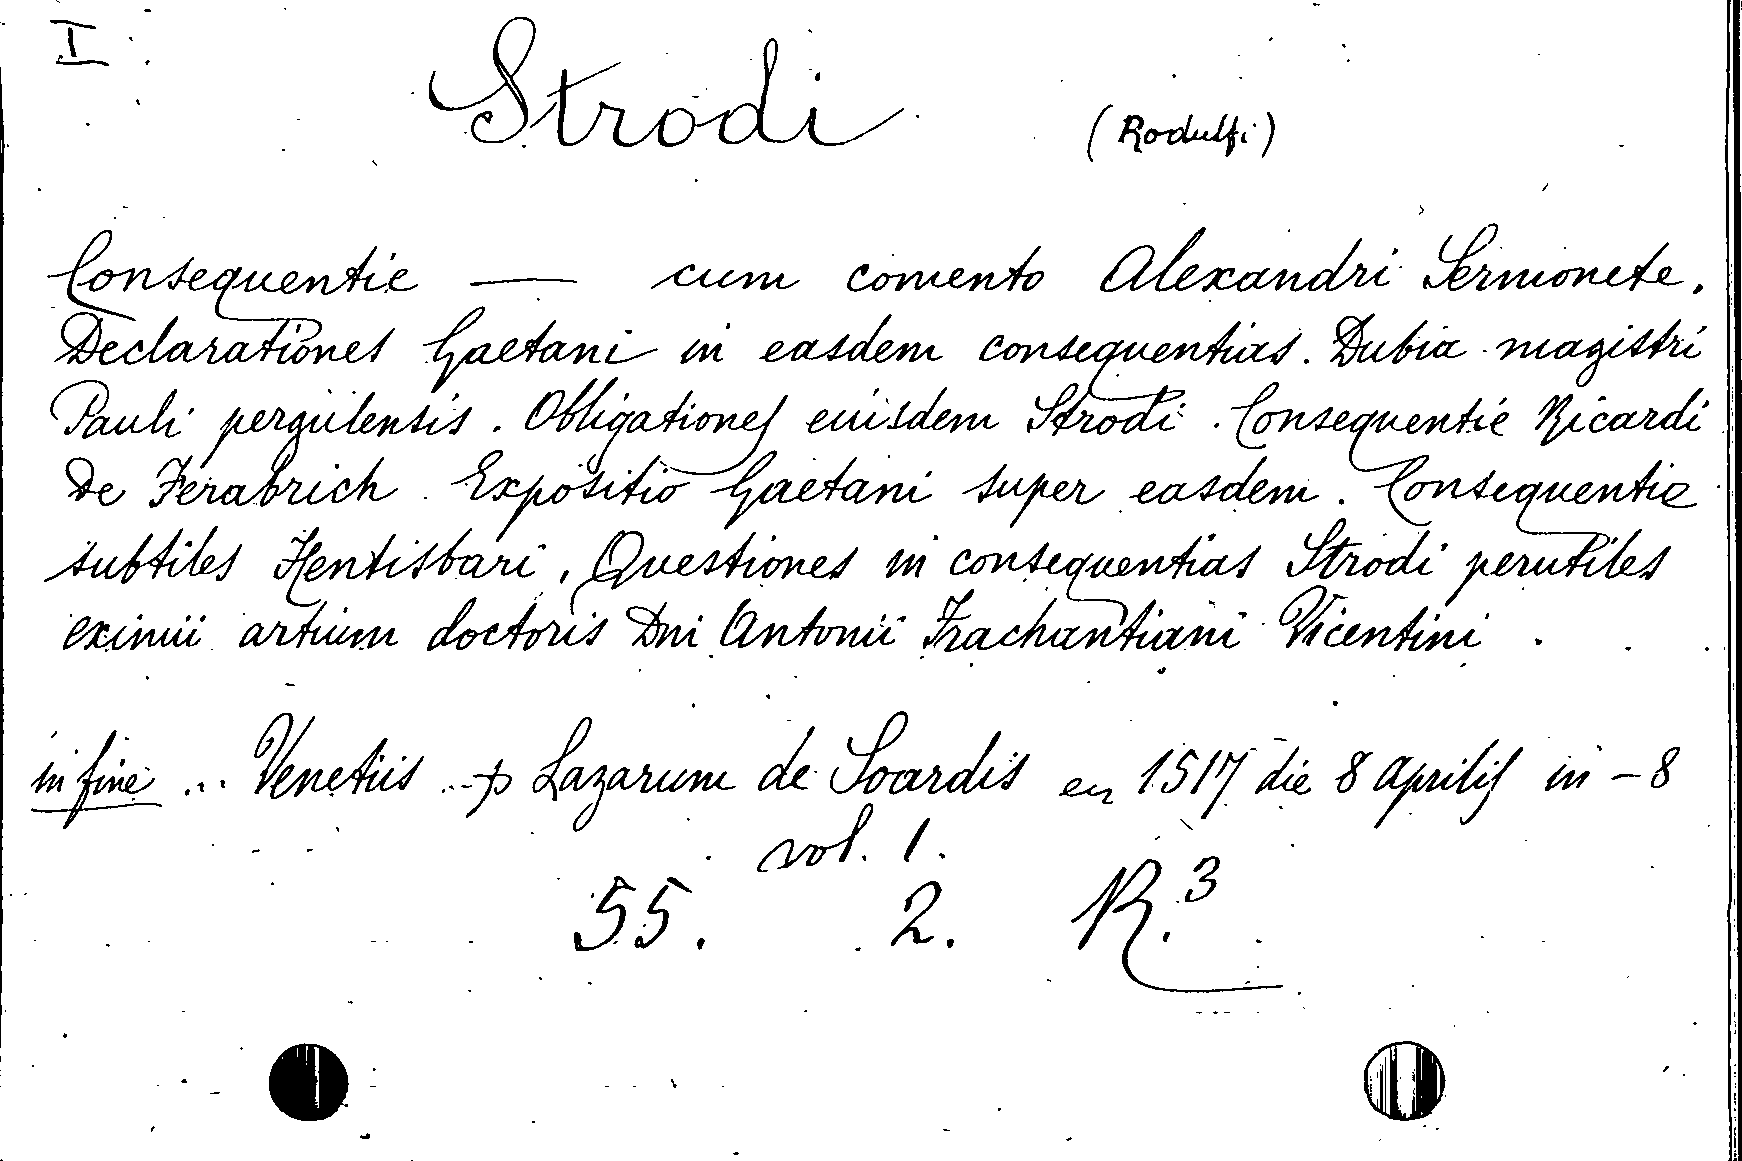 I.
Strodi (Rodulfi)
Consequentie — cum comento Alexandri Sermonete.
Declarationes Gaetani in easdem consequentias. Dubia magistri
Pauli pergulensis. Obligationes eiusdem Strodi. Consequentie Ricardi
De Ferabrich. Expositio Gaetani super easdem. Consequentie
subtiles Hentisbari. Questiones in consequentias Strodi perutiles
eximii artium doctoris Dni Antonii Frachantiani Vicentini.
in fine ... Venetiis ... p Lazarum de Soardis en 1517 die 8 Aprilis in-8
vol. 1.
55. 2. R.3